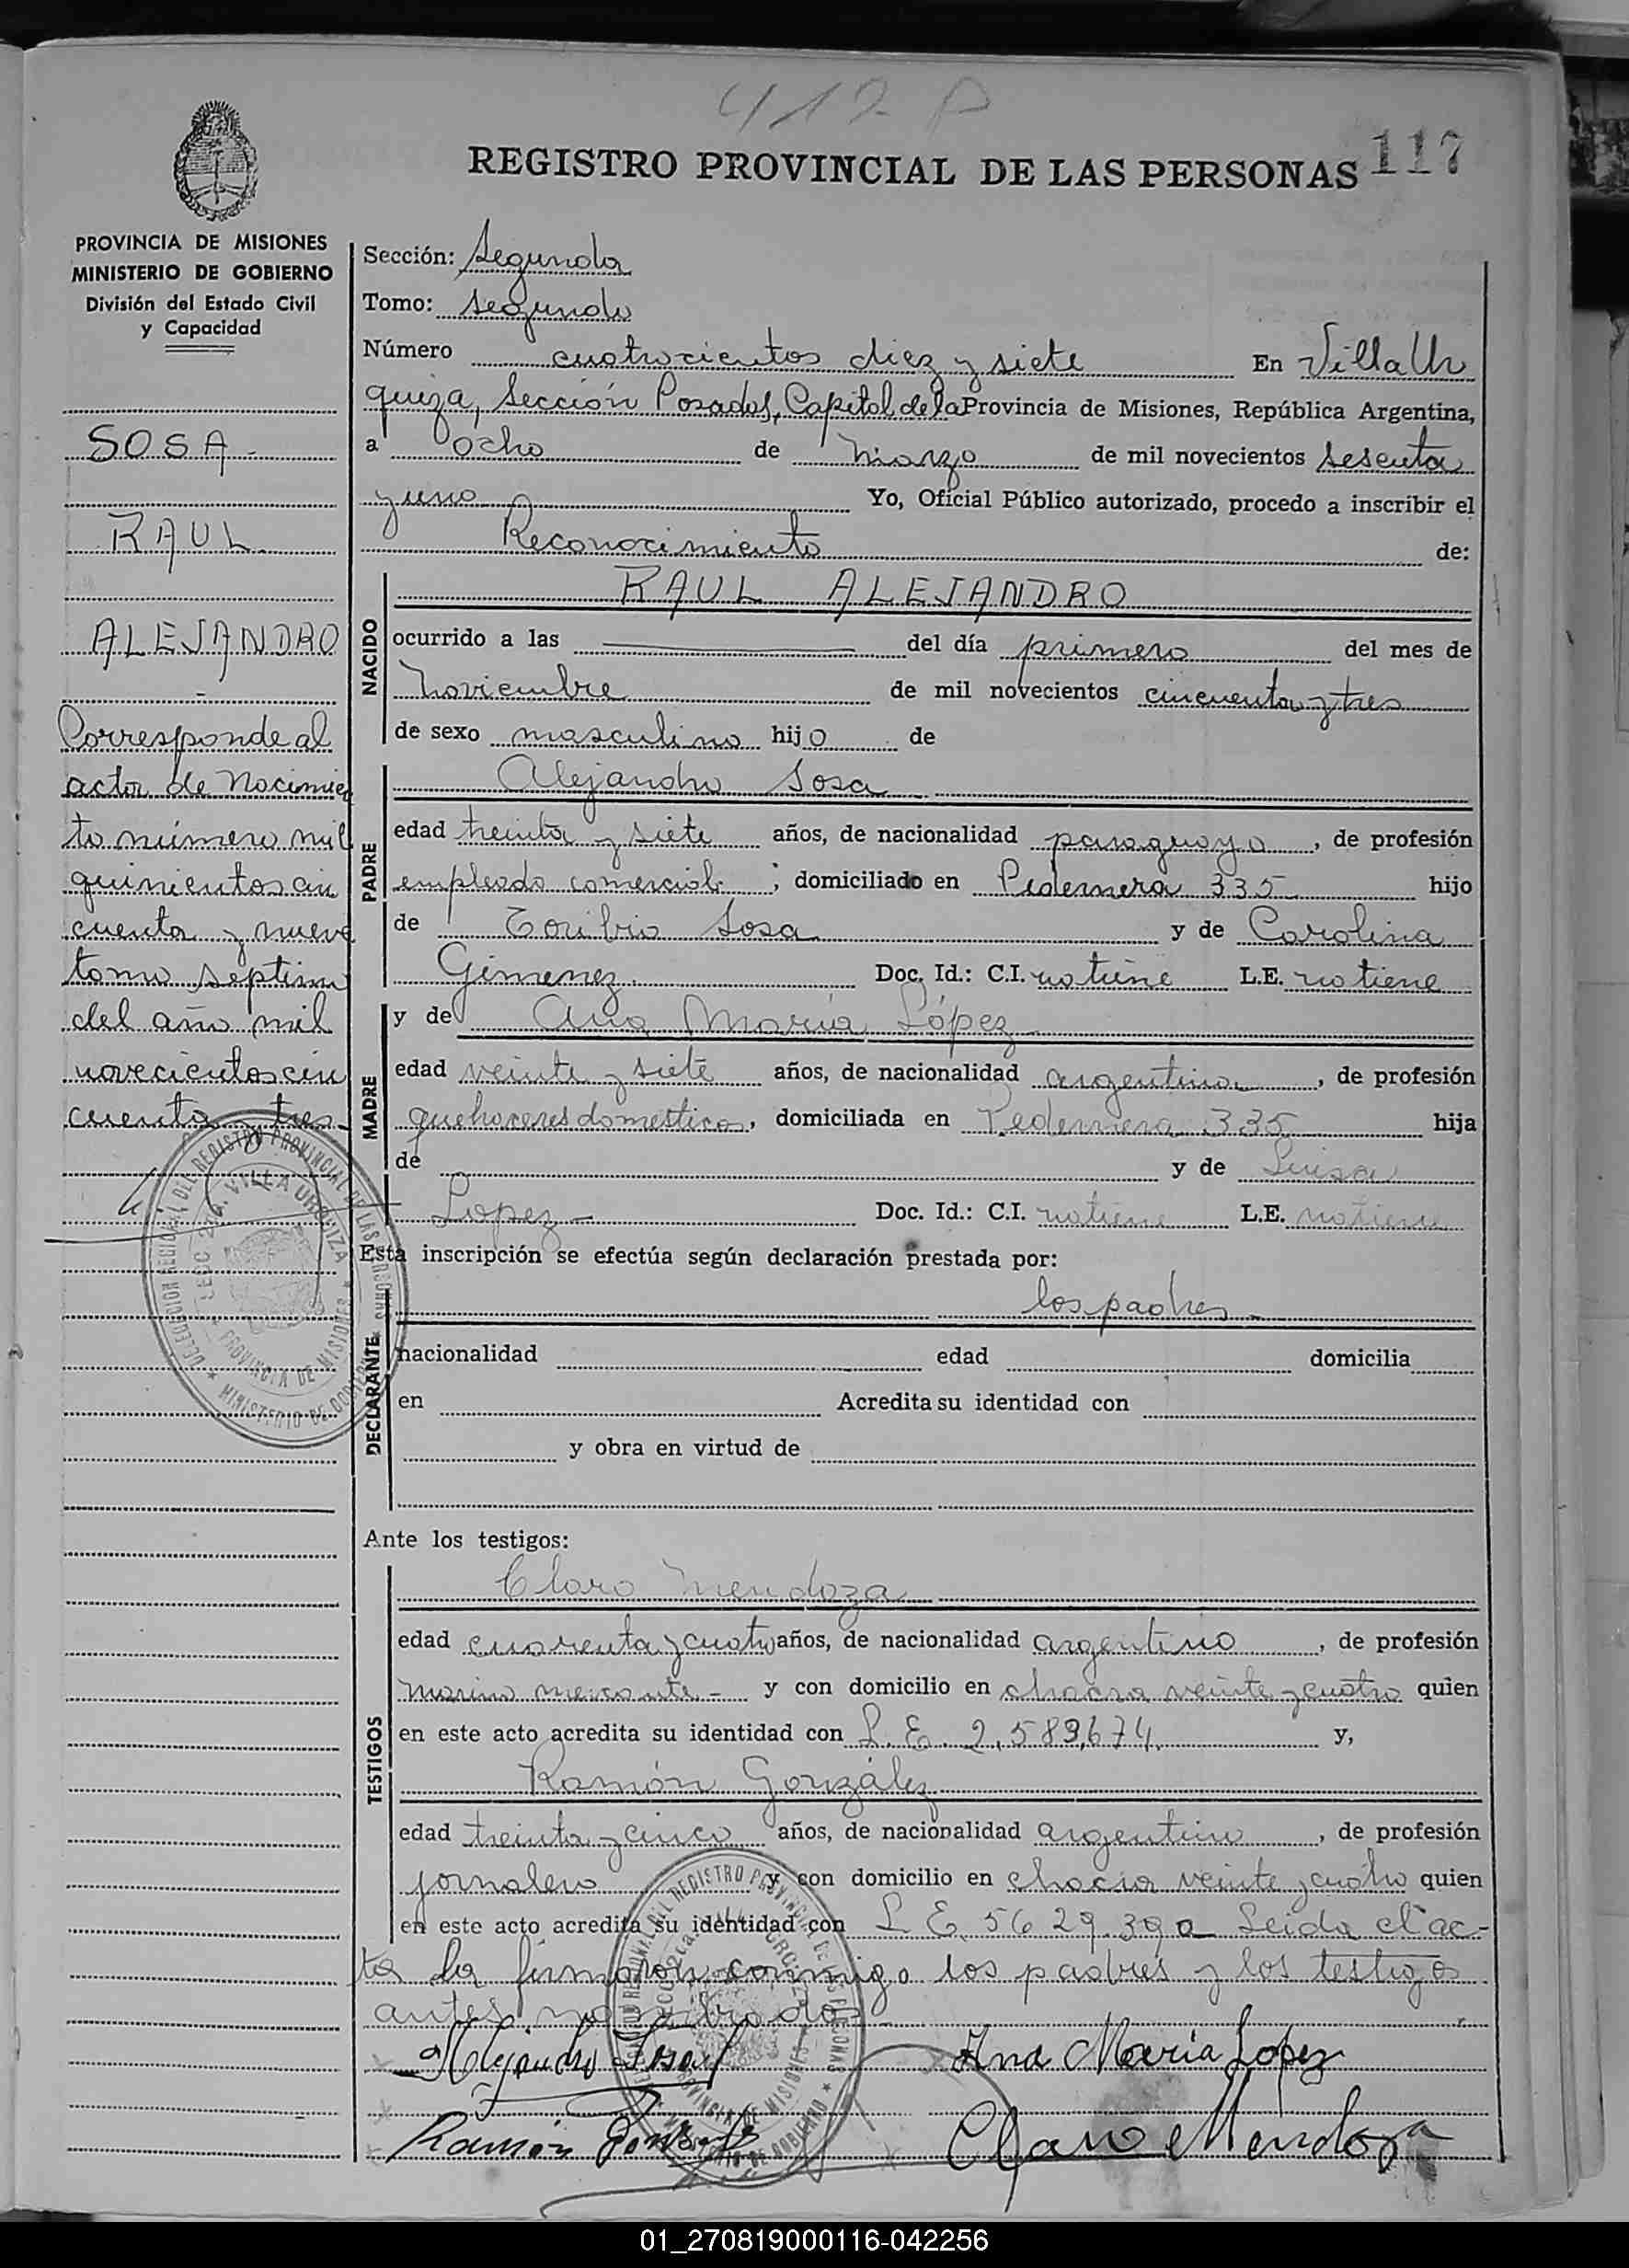 412 P
REGISTRO PROVINCIAL DE LAS PERSONAS 117
PROVINCIA DE MISIONES
MINISTERIO DE GOBIERNO
División del Estado Civil
y Capacidad
SOSA -
RAUL
ALEJANDRO
-
Corresponde al
acta de Nacimien
to número mil
quinientos cin
cuenta y nueve
tomo septimo
del año mil
novecientos cin
cuenta y tres
Sección: Segunda
Tomo: segundo
Número cuatrocientos diez y siete En Villa Ur
quiza, Sección Posadas, Capital de la Provincia de Misiones, República Argentina,
a ocho de Marzo de mil novecientos sesenta
y uno Yo, Oficial Público autorizado, procedo a inscribir el
Reconocimiento de:
NACIDO
RAUL ALEJANDRO
ocurrido a las del día primero del mes de
Noviembre de mil novecientos cincuenta y tres
de sexo masculino hijo de
PADRE
Alejandro Sosa
edad treinta y siete años, de nacionalidad paraguaya, de profesión
empleado comercial; domiciliado en Pedernera 335 hijo
de Toribio Sosa y de Carolina
Gimenez. Doc. Id.: C.I. no tiene L.E. no tiene
MADRE
y de Ana María López
edad veinte y siete años, de nacionalidad argentina, de profesión
quehaceres domesticos, domiciliada en Pedernera 335 hija
de y de Luisa
Lopez - Doc. Id.: C.I. no tiene L.E. no tiene
Esta inscripción se efectúa según declaración prestada por:
DECLARANTE
los padres
nacionalidad edad domicilia
en Acredita su identidad con
y obra en virtud de
Ante los testigos:
TESTIGOS
Claro Mendoza
edad cuarenta y cuatro años, de nacionalidad argentino, de profesión
marino mercante - y con domicilio en chacra veinte y cuatro quien
en este acto acredita su identidad con L.E. 2.589.674 y,
Ramón González
edad treinta y cinco años, de nacionalidad argentino, de profesión
jornalero y con domicilio en chacra veinte y cuatro quien
en este acto acredita su identidad con L E. 5629.390 Leida el ac-
ta la firmaron conmigo los padres y los testigos
antes nombrados
Alejandro Sosa Ana María Lopez
Ramón Claro Mendoza
DELEGACION REGIONAL DEL REGISTRO PROVINCIAL DE LAS PERSONAS
SECC 2da. VILLA URQUIZA
PROVINCIA DE MISIONES
MINISTERIO DE GOBIERNO
01_270819000116-042256